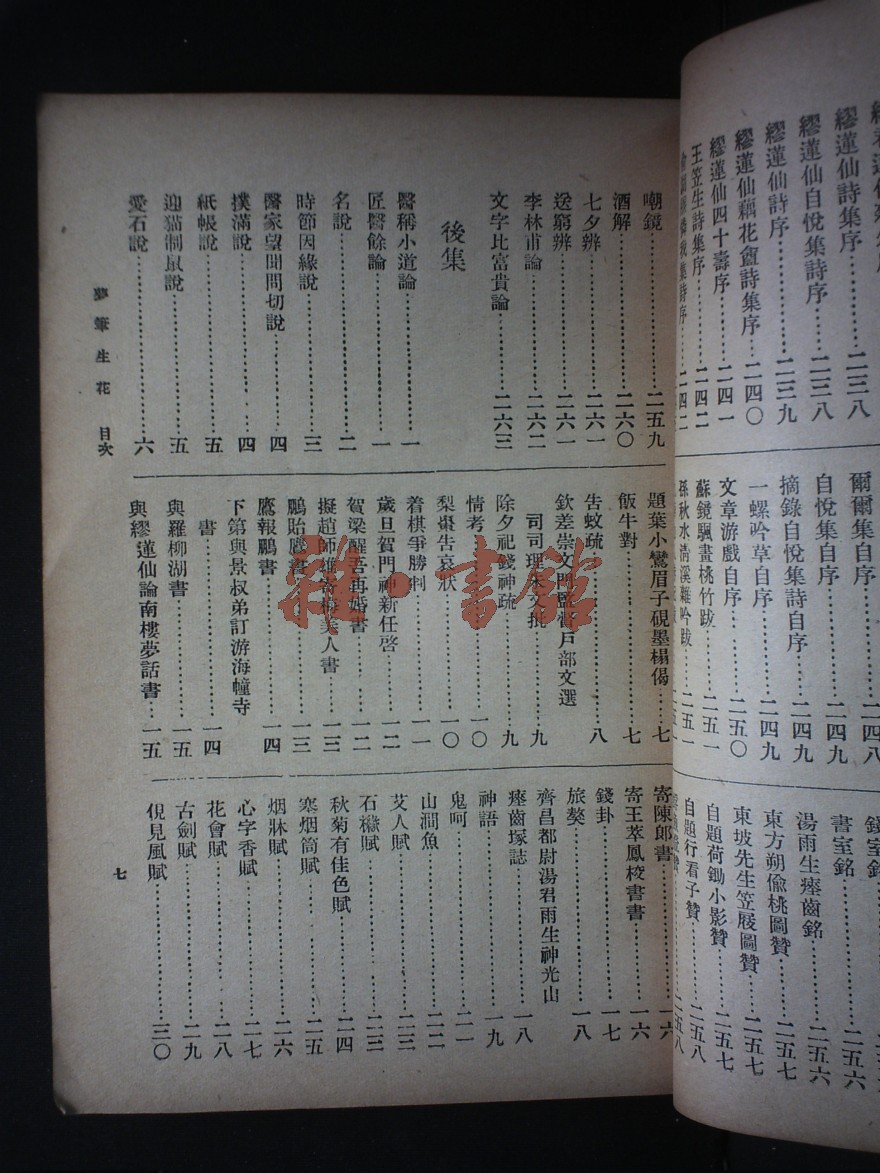 繆蓮仙詩序……二三八
繆蓮仙自悅集詩序……二三八
繆蓮仙詩序……二三九
繆蓮仙藕花盦詩集序……二四〇
繆蓮仙四十壽序……二四一
王笠生詩集序……二四二
詩序……二四二
爾爾集自序……二四八
自悅集自序……二四九
摘錄自悅集詩自序……二四九
一螺吟草自序……二四九
文章游戲自序……二五〇
蘇鏡颿畫桃竹跋……二五一
孫秋水清溪雜吟跋……二五一
書室銘……二五六
湯雨生瘞齒銘……二五六
東方朔偷桃圖贊……二五七
東坡先生笠屐圖贊……二五七
自題荷鋤小影贊……二五七
自題行看子贊……二五八
二五八
嘲鏡……二五九
酒解……二六〇
七夕辨……二六一
送窮辨……二六一
李林甫論……二六二
文字比富貴論……二六三
後集
醫稱小道論……一
匠醫餘論……一
名說……二
時節因緣說……三
醫家望聞問切說……四
撲滿說……四
紙帳說……五
迎猫制鼠說……五
愛石說……六
題葉小鸞眉子硯墨榻偈……七
飯牛對……七
告蚊疏……八
欽差崇文門監督戶部文選
司司理朱文批……九
除夕祀錢神疏……九
情考……一〇
梨棗告哀狀……一〇
着棋爭勝判……一一
歲旦賀門神新任啓……一二
賀梁醒吾再婚書……一二
擬趙師雄寄梅美人書……一三
鵬貽鷹書……一三
鷹報鵬書……一四
下第與景叔弟訂游海幢寺
書……一四
與羅柳湖書……一五
與繆蓮仙論南樓夢話書……一五
寄陳郎書……一六
寄王萃鳳校書書……一六
錢卦……一七
旅獒……一八
齊昌都尉湯君雨生神光山
瘞齒塚誌……一八
神語……一九
鬼呵……二一
山澗魚……二二
艾人賦……二三
石檄賦……二三
秋菊有佳色賦……二四
寒烟筒賦……二五
烟牀賦……二六
心字香賦……二七
花會賦……二八
古劍賦……二九
俔見風賦……三〇
夢筆生花 目次
七
雜·書館